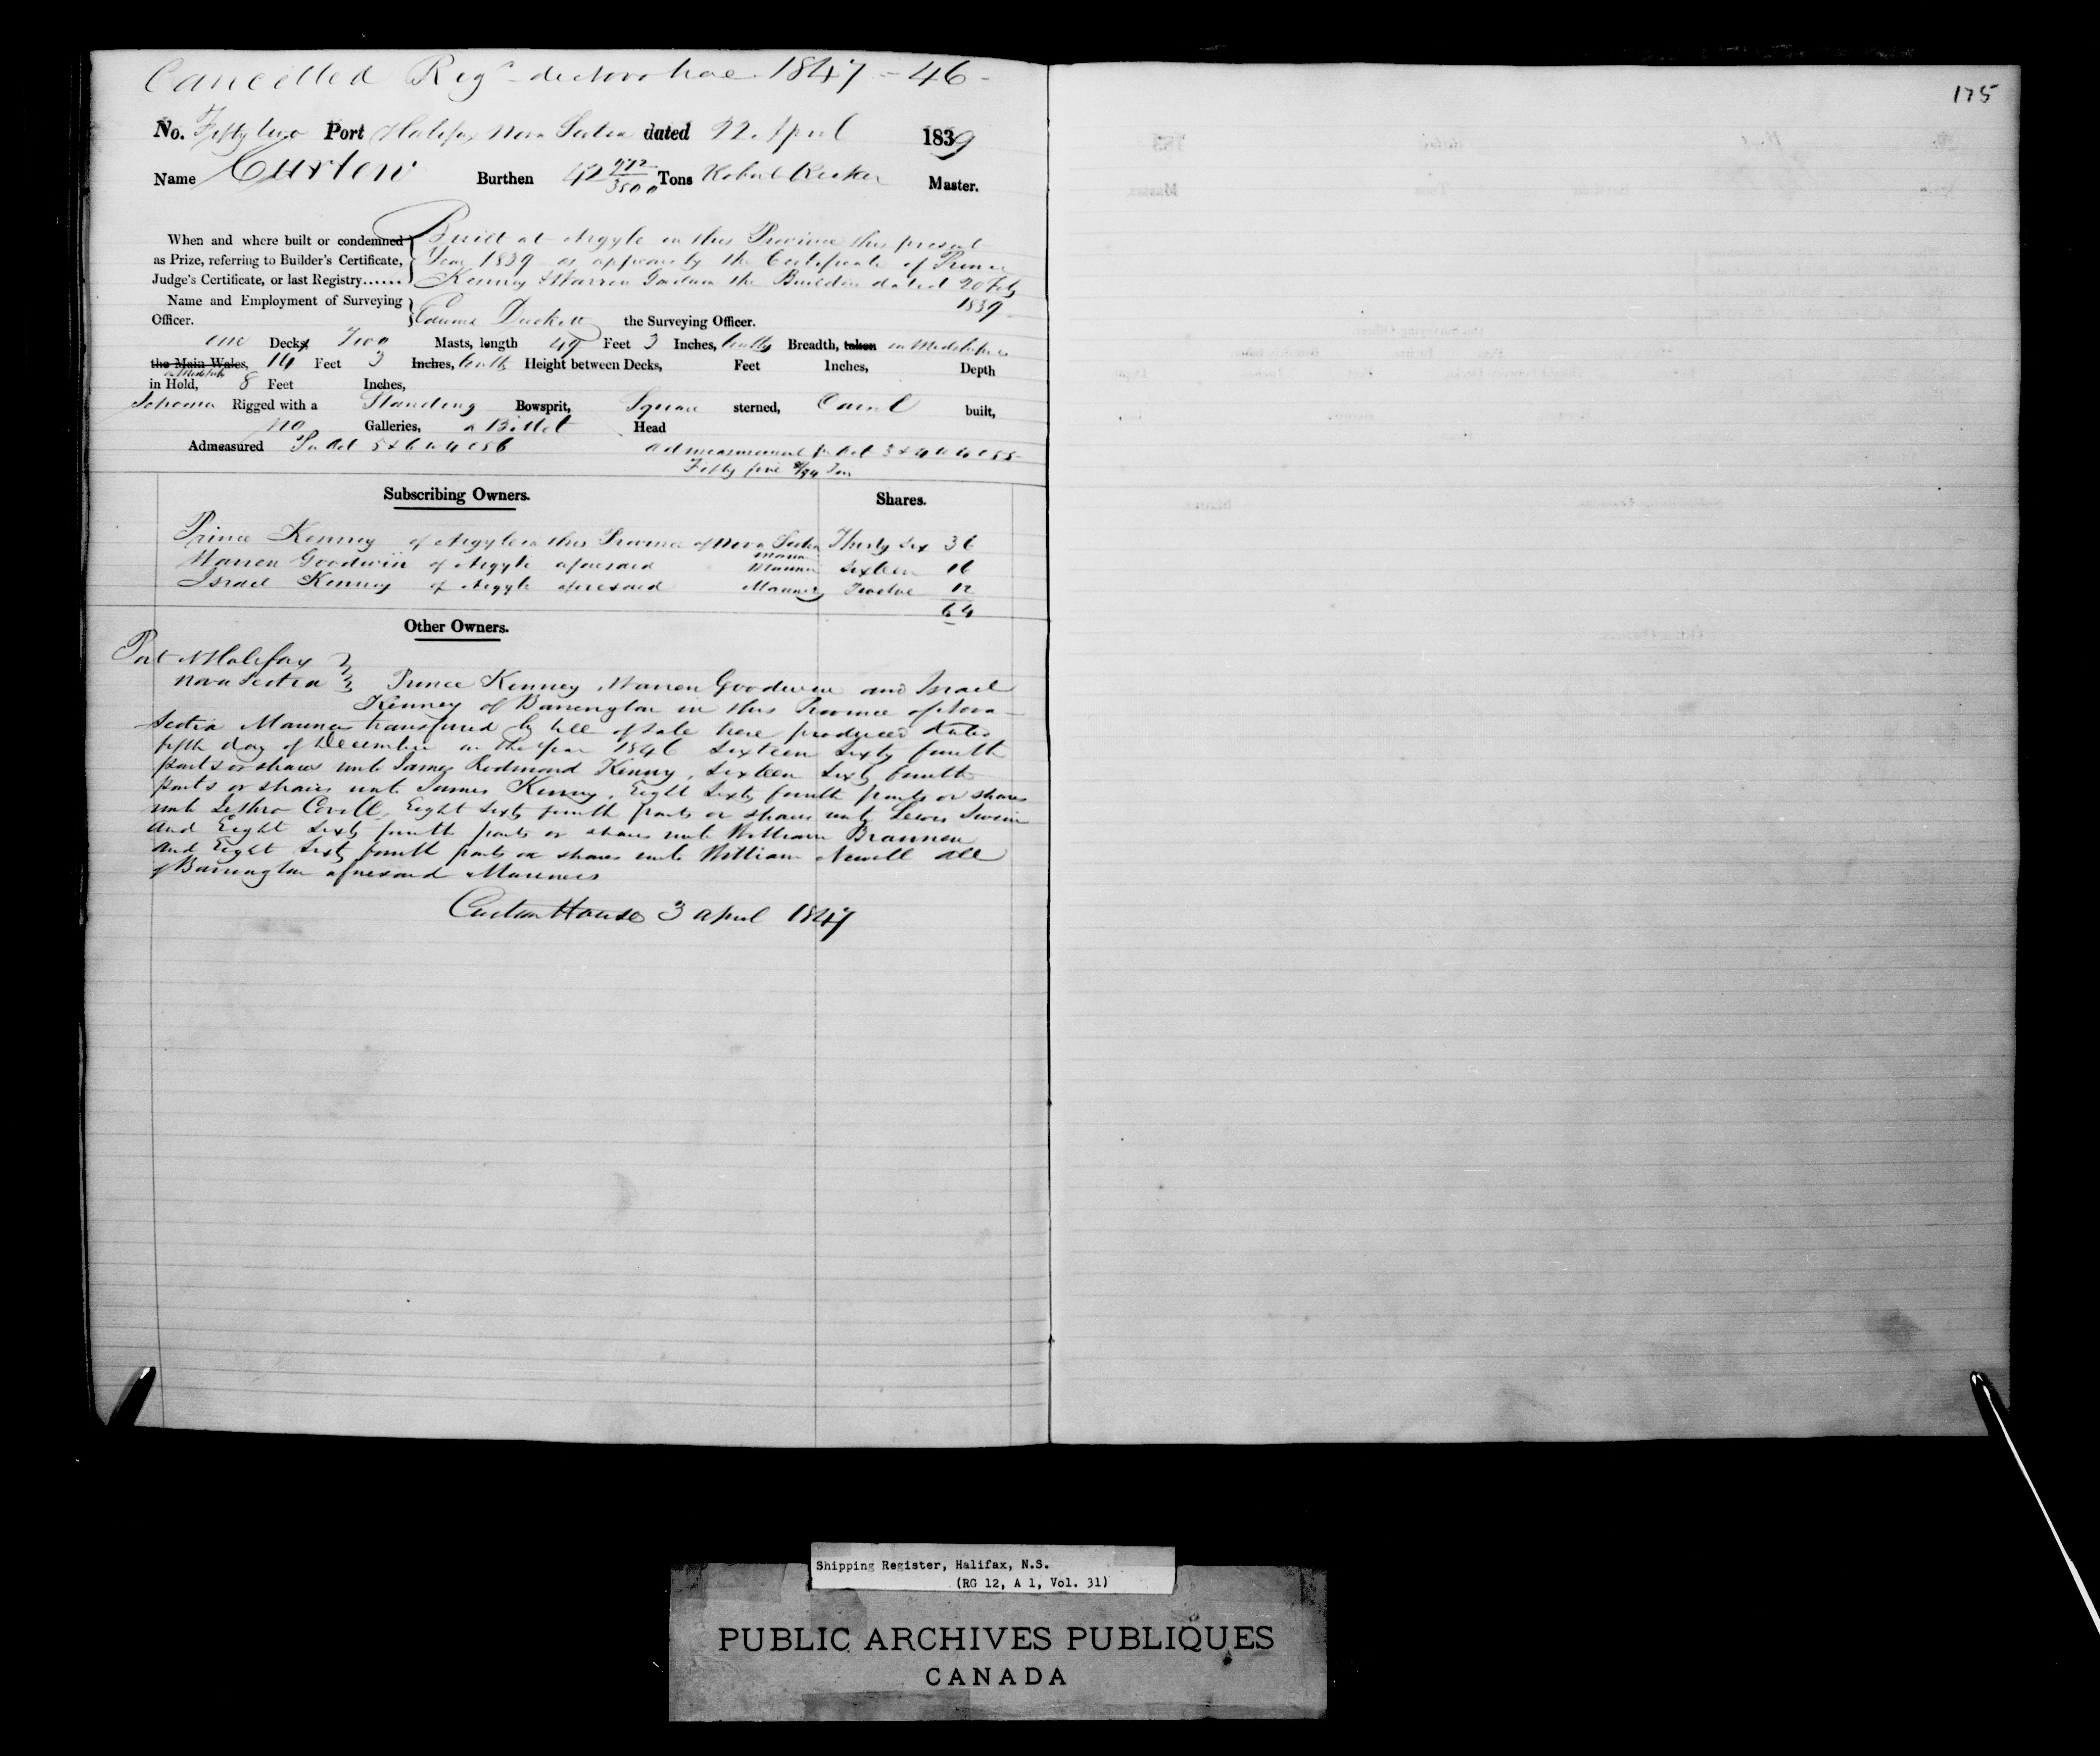 Cancelled Reg de Novo hac 1847 - 46 -
175
No. Fifty two Port Halifax Nova Scotia dated 22 April 1839
Name Curlew Burthen 42 972/3500 Tons Robert Master.
When and where built or condemned Built at Argyle in this Province this present
as Prize, referring to Builder's Certificate, Year 1839 as appears by the Certificate of Prince
Judge's Certificate, or last Registry...... Kenney & Warren Goodwin the Builders dated 20 Feby
Name and Employment of Surveying 1839
Officer. Duckett the Surveying Officer.
one Decks Two Masts, length 49 Feet 3 Inches, tenths Breadth, taken in Midships
the Main Wales, 14 Feet 3 Inches, tenths Height between Decks, Feet Inches, Depth
in Midships
in Hold, 8 Feet Inches,
Schooner Rigged with a Standing Bowsprit, Square sterned, Carvel built,
no Galleries, a Billet Head
Admeasured Pr Act 5 & 6 W 4 C 56 admeasurement pr Act 3 & 4 W 4 C 55
Fifty five /94 Tons
Subscribing Owners. Shares.
Prince Kenney of Argyle in this Province of Nova Scotia Thirty six 36
Mariner
Warren Goodwin of Argyle aforesaid Mariner Sixteen 16
Israel Kenney of Argyle aforesaid Mariner Twelve 12
64
Other Owners.
Port Halifax
Nova Scotia Prince Kenney, Warren Goodwin and Israel
Kenney of Barrington in this Province of Nova
Scotia Mariners transfered by bill of sale here produced dated
fifth day of December in the Year 1846 Sixteen Sixty fourth
parts or shares unto James Redmond Kenny, Sixteen Sixty fourth
parts or shares unto James Kenny, Eight Sixty fourth parts or shares
unto Jethro Covell, Eight Sixty fourth parts or shares unto Lewis Swim
and Eight Sixty fourth parts or shares unto William Brannen
and Eight Sixty fourth parts or shares unto William Newell all
of Barrington aforesaid Mariners
Custom House 3 April 1847
Shipping Register, Halifax, N.S.
(RG 12, A 1, Vol. 31)
PUBLIC ARCHIVES PUBLIQUES
CANADA